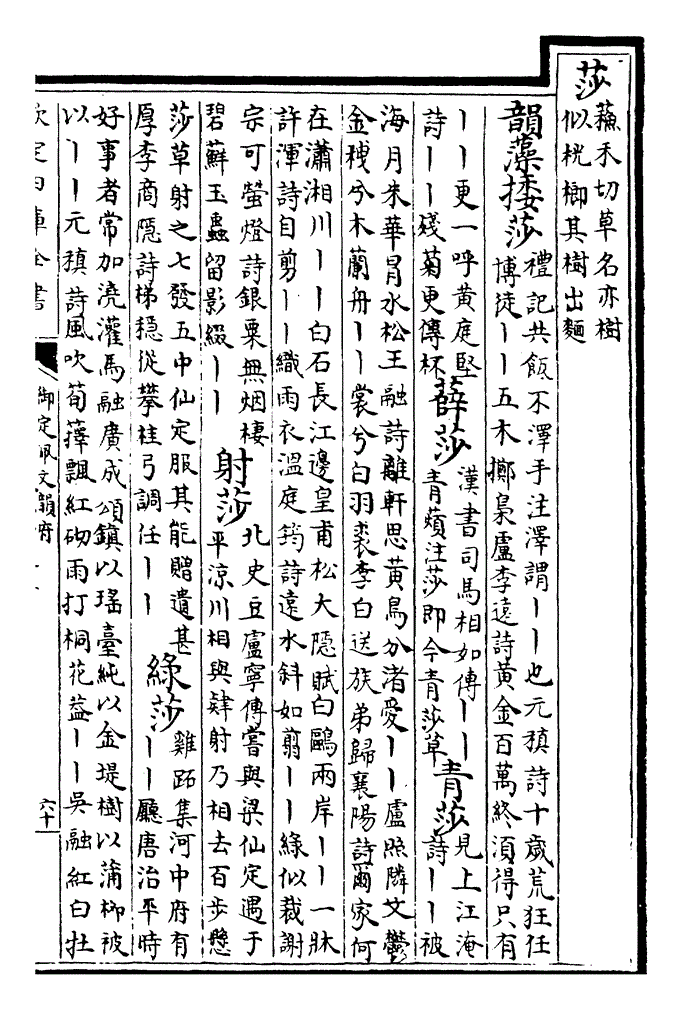 莎蘓禾切草名亦樹
似桄榔其樹出麵
韻藻捼莎禮記共飯不澤手注澤謂丨丨也元稹詩十歲荒狂任
博徒丨丨五木擲梟盧李遠詩黃金百萬終須得只有
丨丨更一呼黃庭堅
詩丨丨殘菊更傳杯
薛莎漢書司馬相如傳丨丨
青薠注莎即今青莎草
青莎見上江淹
詩丨丨被
海月朱華冒水松王融詩離軒思黃鳥分渚愛丨丨盧照隣文鬱
金稉兮木蘭舟丨丨裳兮白羽裘李白送族弟歸襄陽詩爾家何
在瀟湘川丨丨白石長江邊皇甫松大隱賦白鷗兩岸丨丨一牀
許渾詩自剪丨丨織雨衣溫庭筠詩遠水斜如翦丨丨綠似裁謝
宗可螢燈詩銀粟無烟棲
碧蘚玉蟲留影綴丨丨
射莎北史豆盧寧傳嘗與梁仙定遇于
平涼川相與肄射乃相去百步懸
莎草射之七發五中仙定服其能贈遺甚
厚李商隱詩梯穩從攀桂弓調任丨丨
綠莎雞跖集河中府有
丨丨廳唐治平時
好事者常加澆灌馬融廣成頌鎮以瑤臺純以金堤樹以蒲栁被
以丨丨元稹詩風吹筍籜飄紅砌雨打桐花蓋丨丨吳融紅白牡
欽定四庫全書
御定佩文韻府
六十